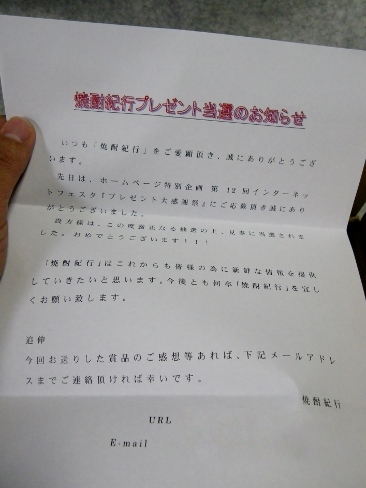 焼酎紀行プレゼント当選のお知らせ
いつも「焼酎紀行」をご愛顧頂き、誠にありがとうござ
います。
先日は、ホームページ特別企画 第12回インターネッ
トフェスタ『プレゼント大感謝祭』にご応募頂き誠にあり
がとうございました。
貴方様は、この度厳正なる抽選の上、見事に当選されま
した。おめでとうございます!!!
「焼酎紀行」はこれからも皆様の為に新鮮な情報を提供
していきたいと思います。今後とも何卒「焼酎紀行」を宜し
くお願い致します。
追伸
今回お送りした賞品のご感想等あれば、下記メールアドレ
スまでご連絡頂ければ幸いです。
焼酎紀行
URL
E-mail